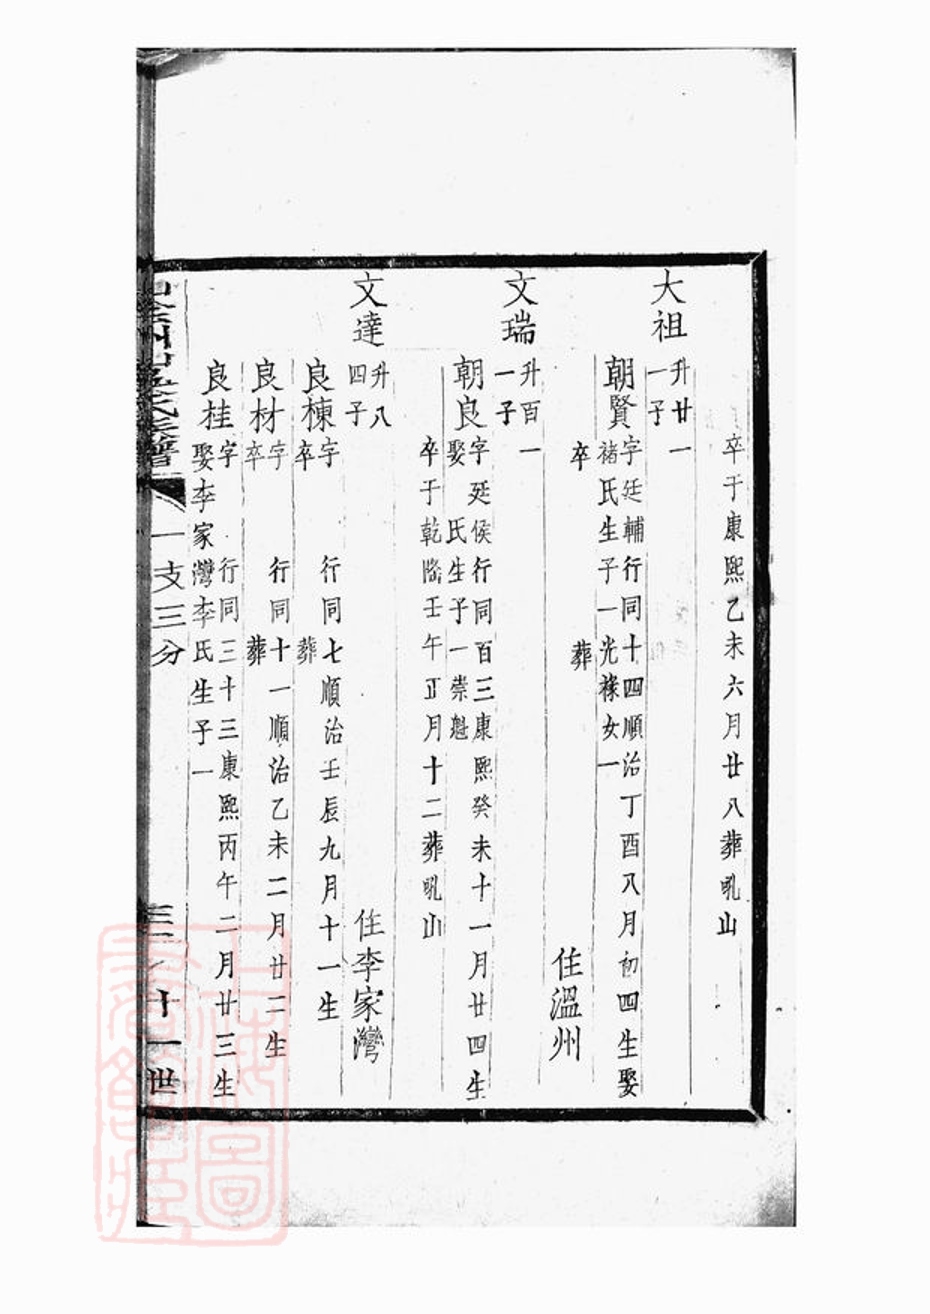 卒于康熙乙未六月廿八葬吼山
大祖
升廿一
一子
朝賢
字廷輔行同十四順治丁酉八月初四生娶
褚氏生子一光祿女一
卒 葬
住溫州
文瑞
升百一
一子
朝良
字廷侯行同百三康熙癸未十一月廿四生
娶 氏生子一崇魁
卒于乾隆壬午正月十二葬吼山
文達
升八
四子
住李家灣
良棟
字 行同七順治壬辰九月十一生
卒 葬
良材
字 行同十一順治乙未二月廿二生
卒 葬
良桂
字 行同三十三康熙丙午二月廿三生
娶李家灣李氏生子一
一支三分
十一世